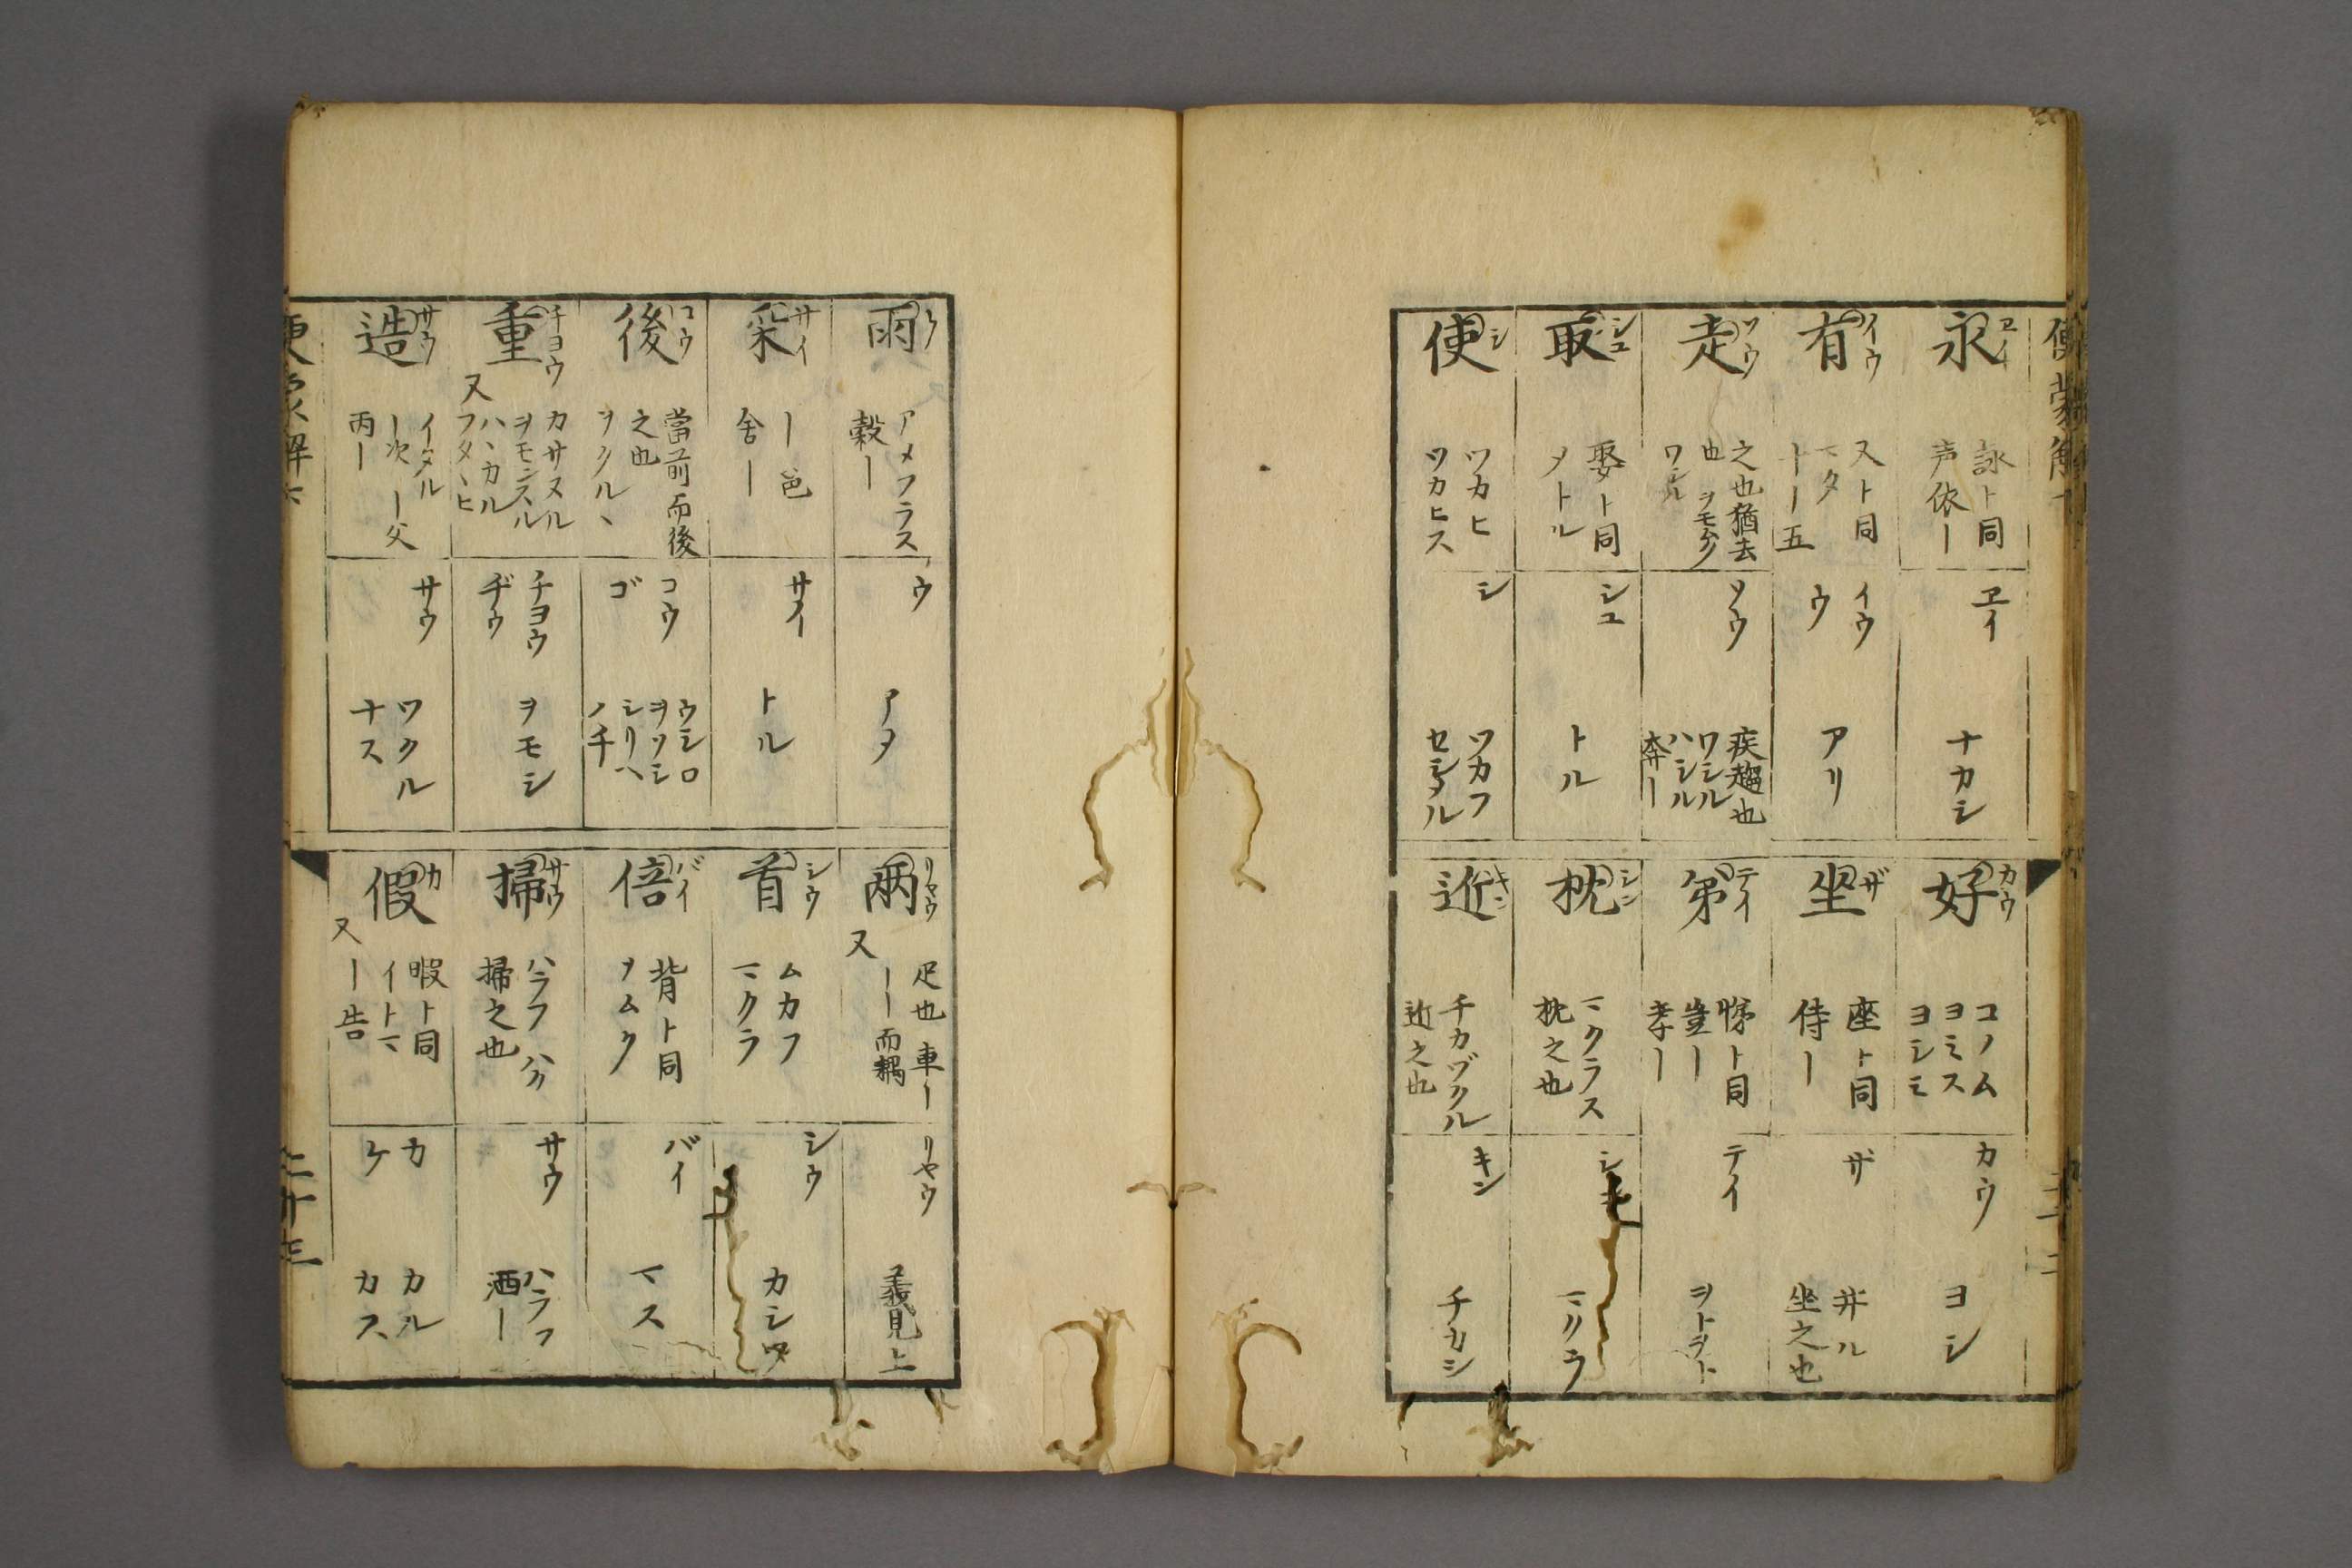 永 ヱイ
詠ト同
声依ー
ヱイ
ナカシ
有 イウ
又ト同
マタ
十ー五
イウ
ウ
アリ
走 ソウ
之也猶去
也 ヲモムク
ワシル
ソウ
疾趨也
ワシル
ハシル
奔ー
取 シユ
娶ト同
メトル
シユ
トル
使 シ
ツカヒ
ツカヒス
シ
ツカフ
セシムル
好 カウ
コノム
ヨミス
ヨシミ
カウ
ヨシ
坐 ザ
座ト同
侍ー
ザ
井ル
坐之也
弟 テイ
悌ト同
豈ー
孝ー
テイ
ヲトヲト
枕 シン
マクラス
枕之也
マクラ
近 キン
チカヅクル
近之也
キン
チカシ
雨 ウ
アメフラス
穀ー
ウ
アメ
采 サイ
ー邑
舎ー
サイ
トル
後 コウ
當前而後
之也
ヲクルヽ
コウ
ゴ
ウシロ
ヲソシ
シリヘ
ノチ
重 チヨウ
カサヌル
ヲモンスル
又
ハヽカル
フタヽヒ
チヨウ
ヂウ
ヲモシ
造 サウ
イタル
ー次 ー父
丙ー
サウ
ツクル
ナス
兩 リヤウ
疋也 車ー
又
ーー而耦
リヤウ
義見上
首 シウ
ムカフ
マクラ
シウ
カシラ
倍 バイ
背ト同
ソムク
バイ
マス
掃 サウ
ハラフ ハク
掃之也
サウ
ハラフ
洒ー
假 カ
暇ト同
イトマ
又
ー告
カ
ケ
カル
カス
二十三